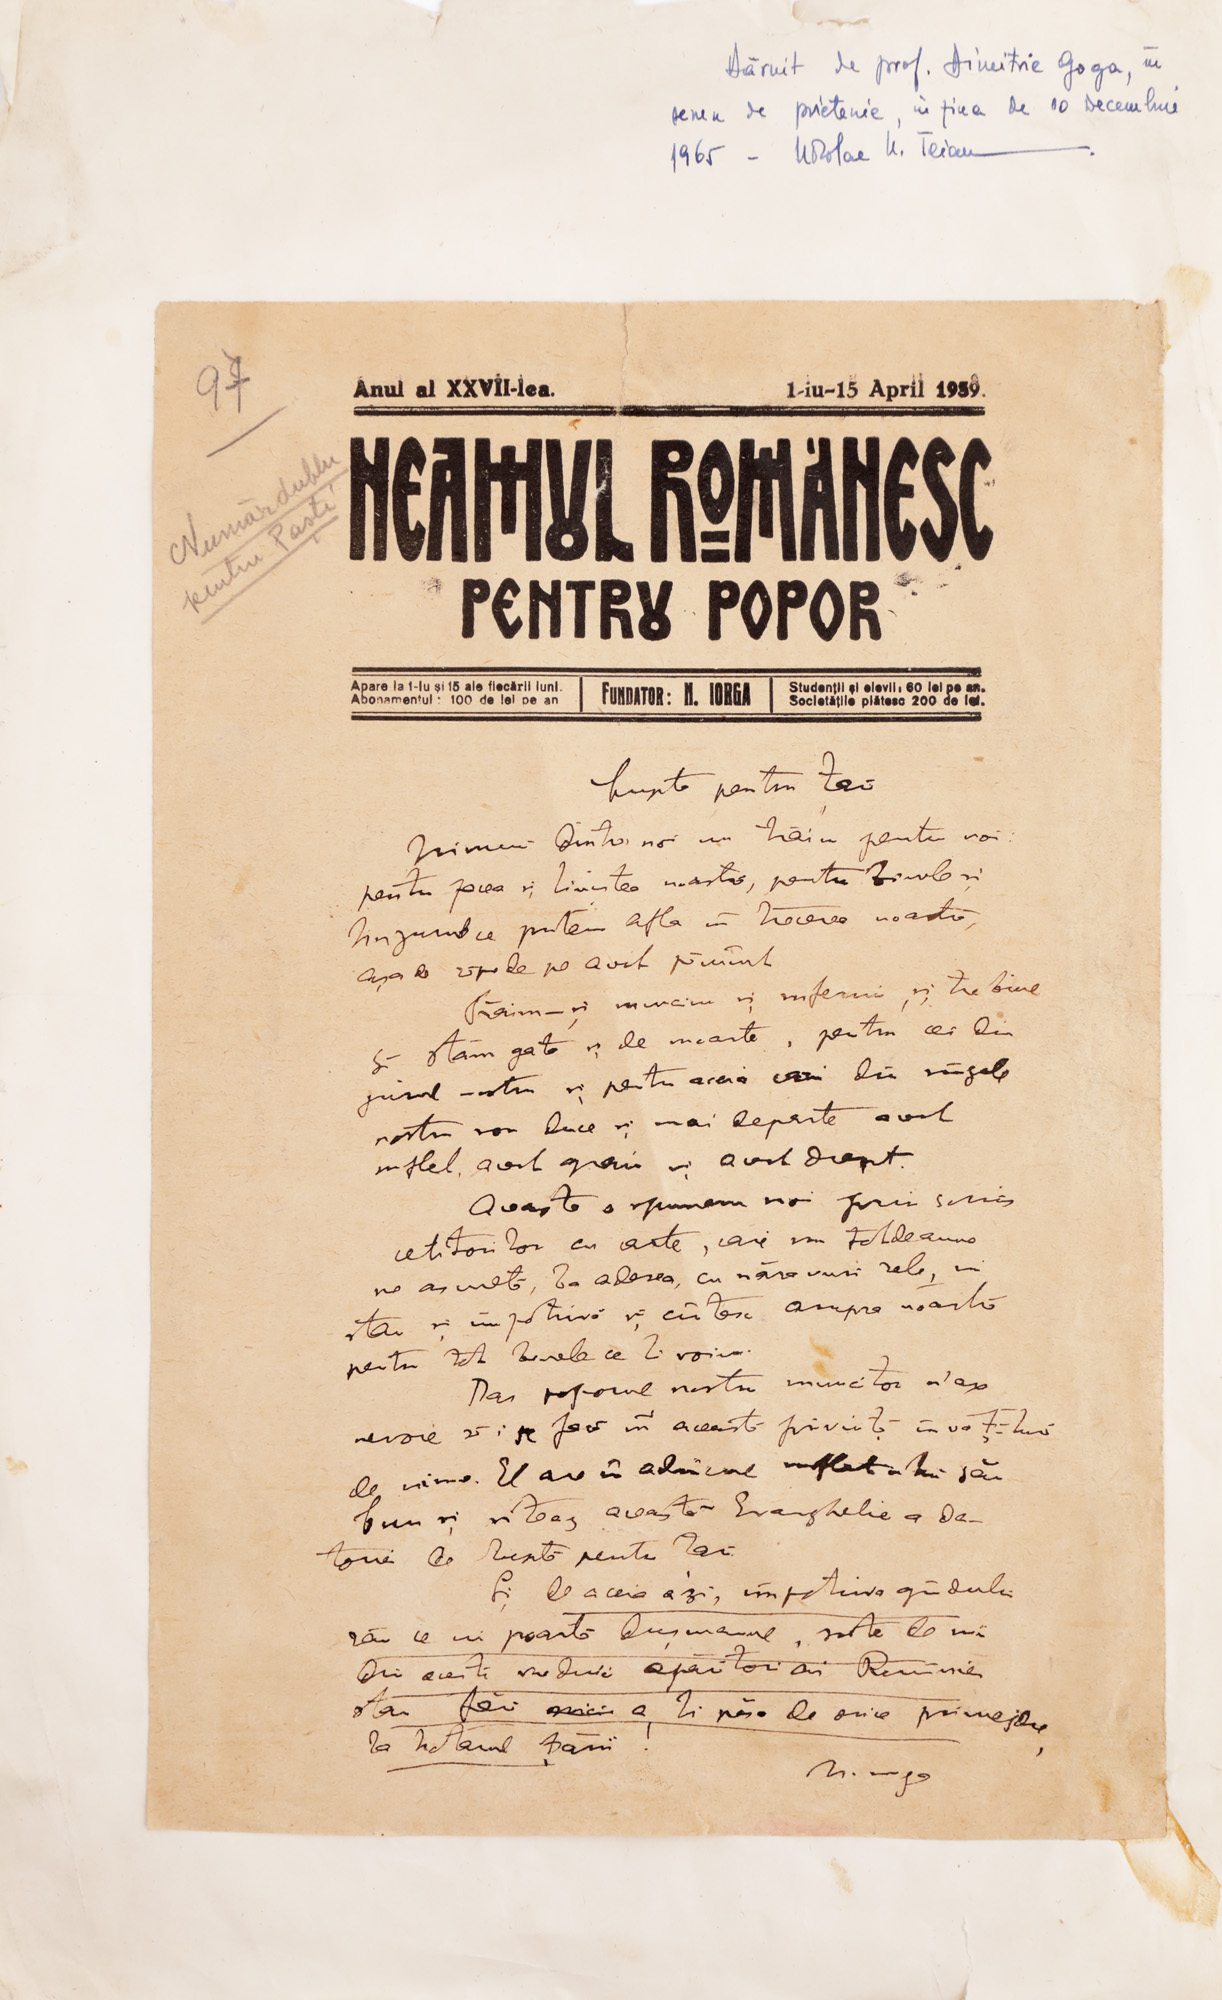 Dăruit de prof. Dimitrie Goga, în
semn de prietenie, în ziua de 10 Decembrie
1965 – Nicolae N.
97
Număr dublu
pentru Paști
Anul al XXVII-lea. 1-iu–15 April 1939.
NEAMUL ROMĂNESC
PENTRU POPOR
Apare la 1-iu și 15 ale fiecării luni. FUNDATOR: N. IORGA Studenții și elevii: 60 lei pe an.
Abonamentul: 100 de lei pe an Societățile plătesc 200 de lei.
Lupta pentru țară
Nimeni dintre noi nu trăim pentru noi:
pentru pacea și liniștea noastră, pentru binele și
ce putem afla în trecerea noastră,
așa de răpede pe acest pămînt
Trăim și muncim și suferim, și trebuie
să stăm gata și de moarte, pentru cei din
jurul nostru și pentru aceia cari din sîngele
nostru vor duce și mai departe acest
suflet, acest graiu și acest drept.
Aceasta o spunem noi prin scris
cetitorilor cu carte, cari nu totdeauna
ne ascultă, ba adesea, cu năravuri rele, ni
stau și împotrivă și cîrtesc asupra noastră
pentru tot binele ce li voim.
Dar poporul nostru muncitor n'are
nevoie să i se facă în această privință învățătură
de nime. El are în adîncul sufletului său
bun și viteaz această Evanghelie a da-
toriei de luptă pentru țară.
Și de aceia azi, împotriva gîndului
rău ce ni poartă dușmanul, sute de mii
din acești apărători ai României
stau fără a li păsa de orice primejdie,
la hotarul țării!
N. Iorga